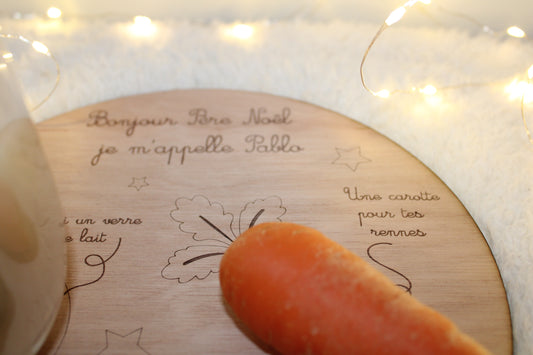 Bonjour Père Noël
je m'appelle Pablo
Une carotte
pour tes
rennes
i un verre
e lait